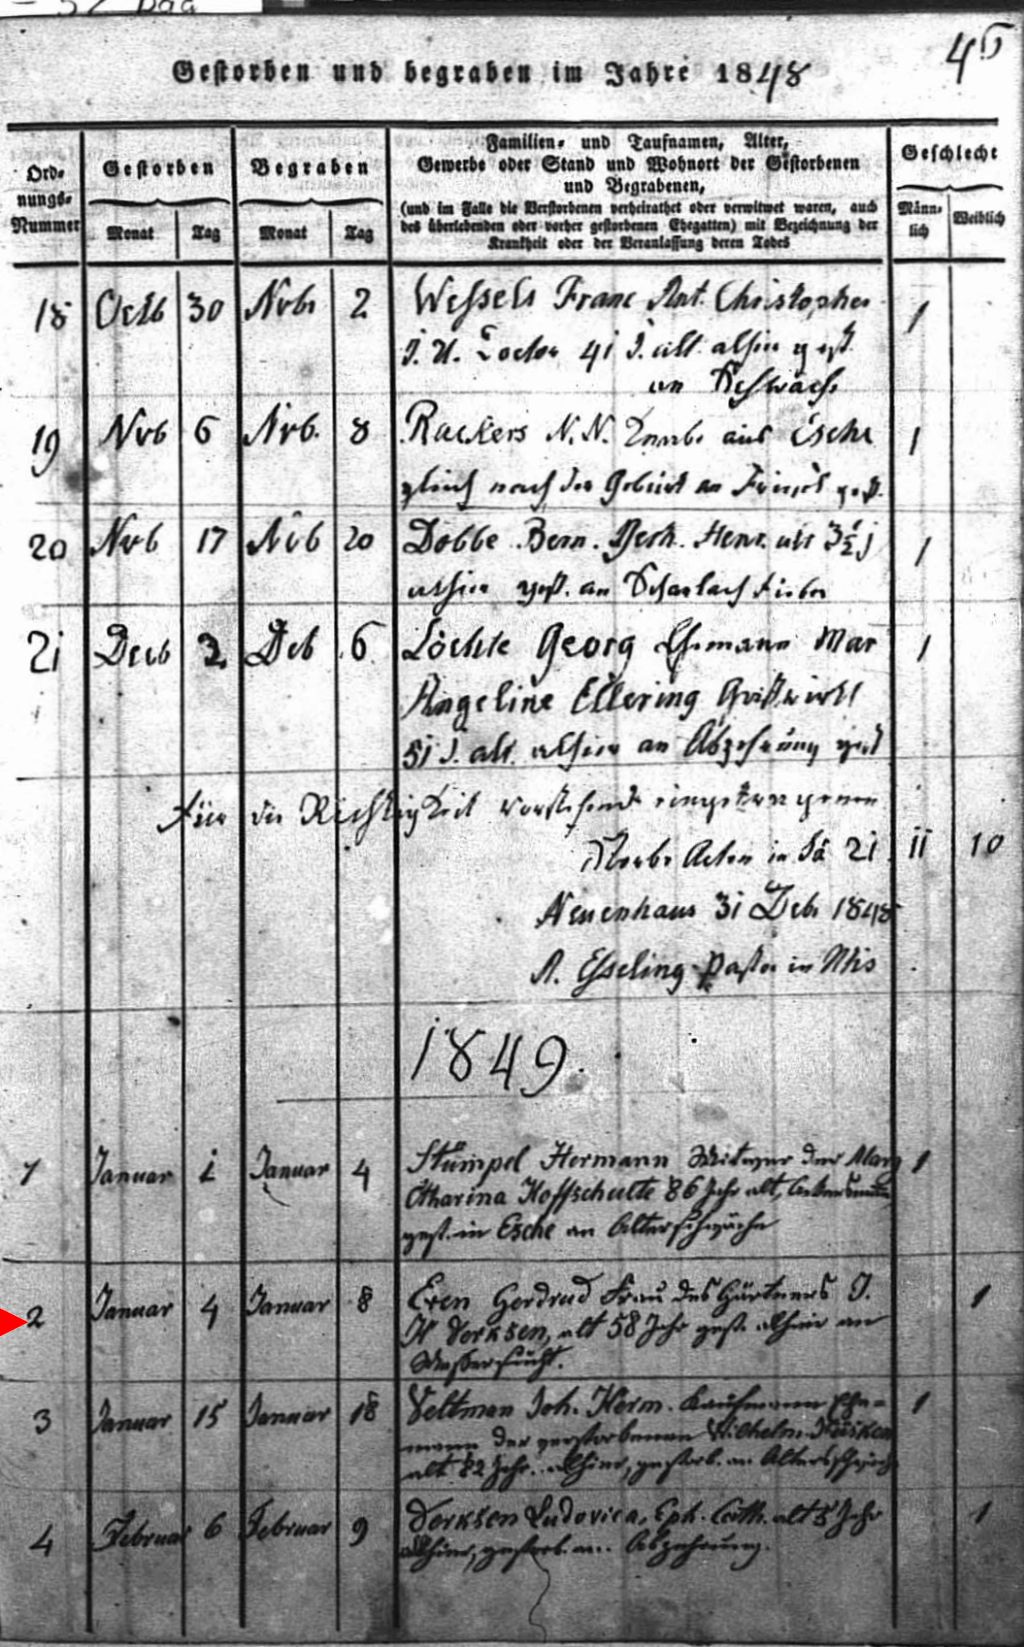 45
Gestorben und begraben im Jahre 1848
Ord-
nungs-
Nummer
Gestorben
Begraben
Monat
Tag
Monat
Tag
Familien- und Taufnamen, Alter,
Gewerbe oder Stand und Wohnort der Gestorbenen
und Begrabenen,
(und im Falle die Verstorbenen verheirathet oder verwitwet waren, auch
des überlebenden oder vorher gestorbenen Ehegatten) mit Bezeichnung der
Krankheit oder der Veranlassung deren Todes
Geschlecht
Männ-
lich
Weiblich
18 Octb 30 Nvbr 2 Wessels Franc Ant. Christopher 1
J. U. Doctor 41 J. alt alhier gest.
an
19 Nvb 6 Nvb. 8 Rackers N.N. Knabe aus Esche 1
gleich nach der Geburt an gest.
20 Nvb 17 Nvb 20 Dobbe Bern. Herm. Henr. alt 3½ j 1
alhier gest. an Scharlach Fieber
21 Decb 3 Deb 6 Löchte Georg Ehemann Mar 1
Angeline Ellering Gastwirth
51 J. alt alhier an Abzehrung gest
Für die Richtigkeit vorstehend eingetragenen
Sterbe Acten in Sa 21 11 10
Neuenhaus 31 Deb. 1848
A. Esseling Pastor in Mis
1849.
1 Januar 1 Januar 4 Stümpel Hermann Witwer der Marg 1
Catharina Hoffschulte 86 Jahr alt, Ackersmann
gest. in Esche an Altersschwäche
2 Januar 4 Januar 8 Even Gerdrud Frau des Gärtners J. 1
H Derksen, alt 58 Jahr gest. alhier an
Wassersucht.
3 Januar 15 Januar 18 Veltman Joh. Herm. Kaufmann Ehe- 1
mann der verstorbenen Wilhelm.
alt 82 Jahr. alhier, gestorb. an Altersschwäche
4 Februar 6 Februar 9 Derksen Ludovica, Eph. Cath. alt 5 Jahr 1
alhier, gestorb. an Abzehrung.